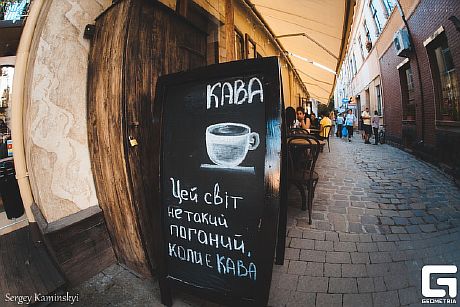 КАВА
Цей світ
не такий
поганий,
коли є КАВА
Sergey Kaminskyi
G
GEOMETRIA